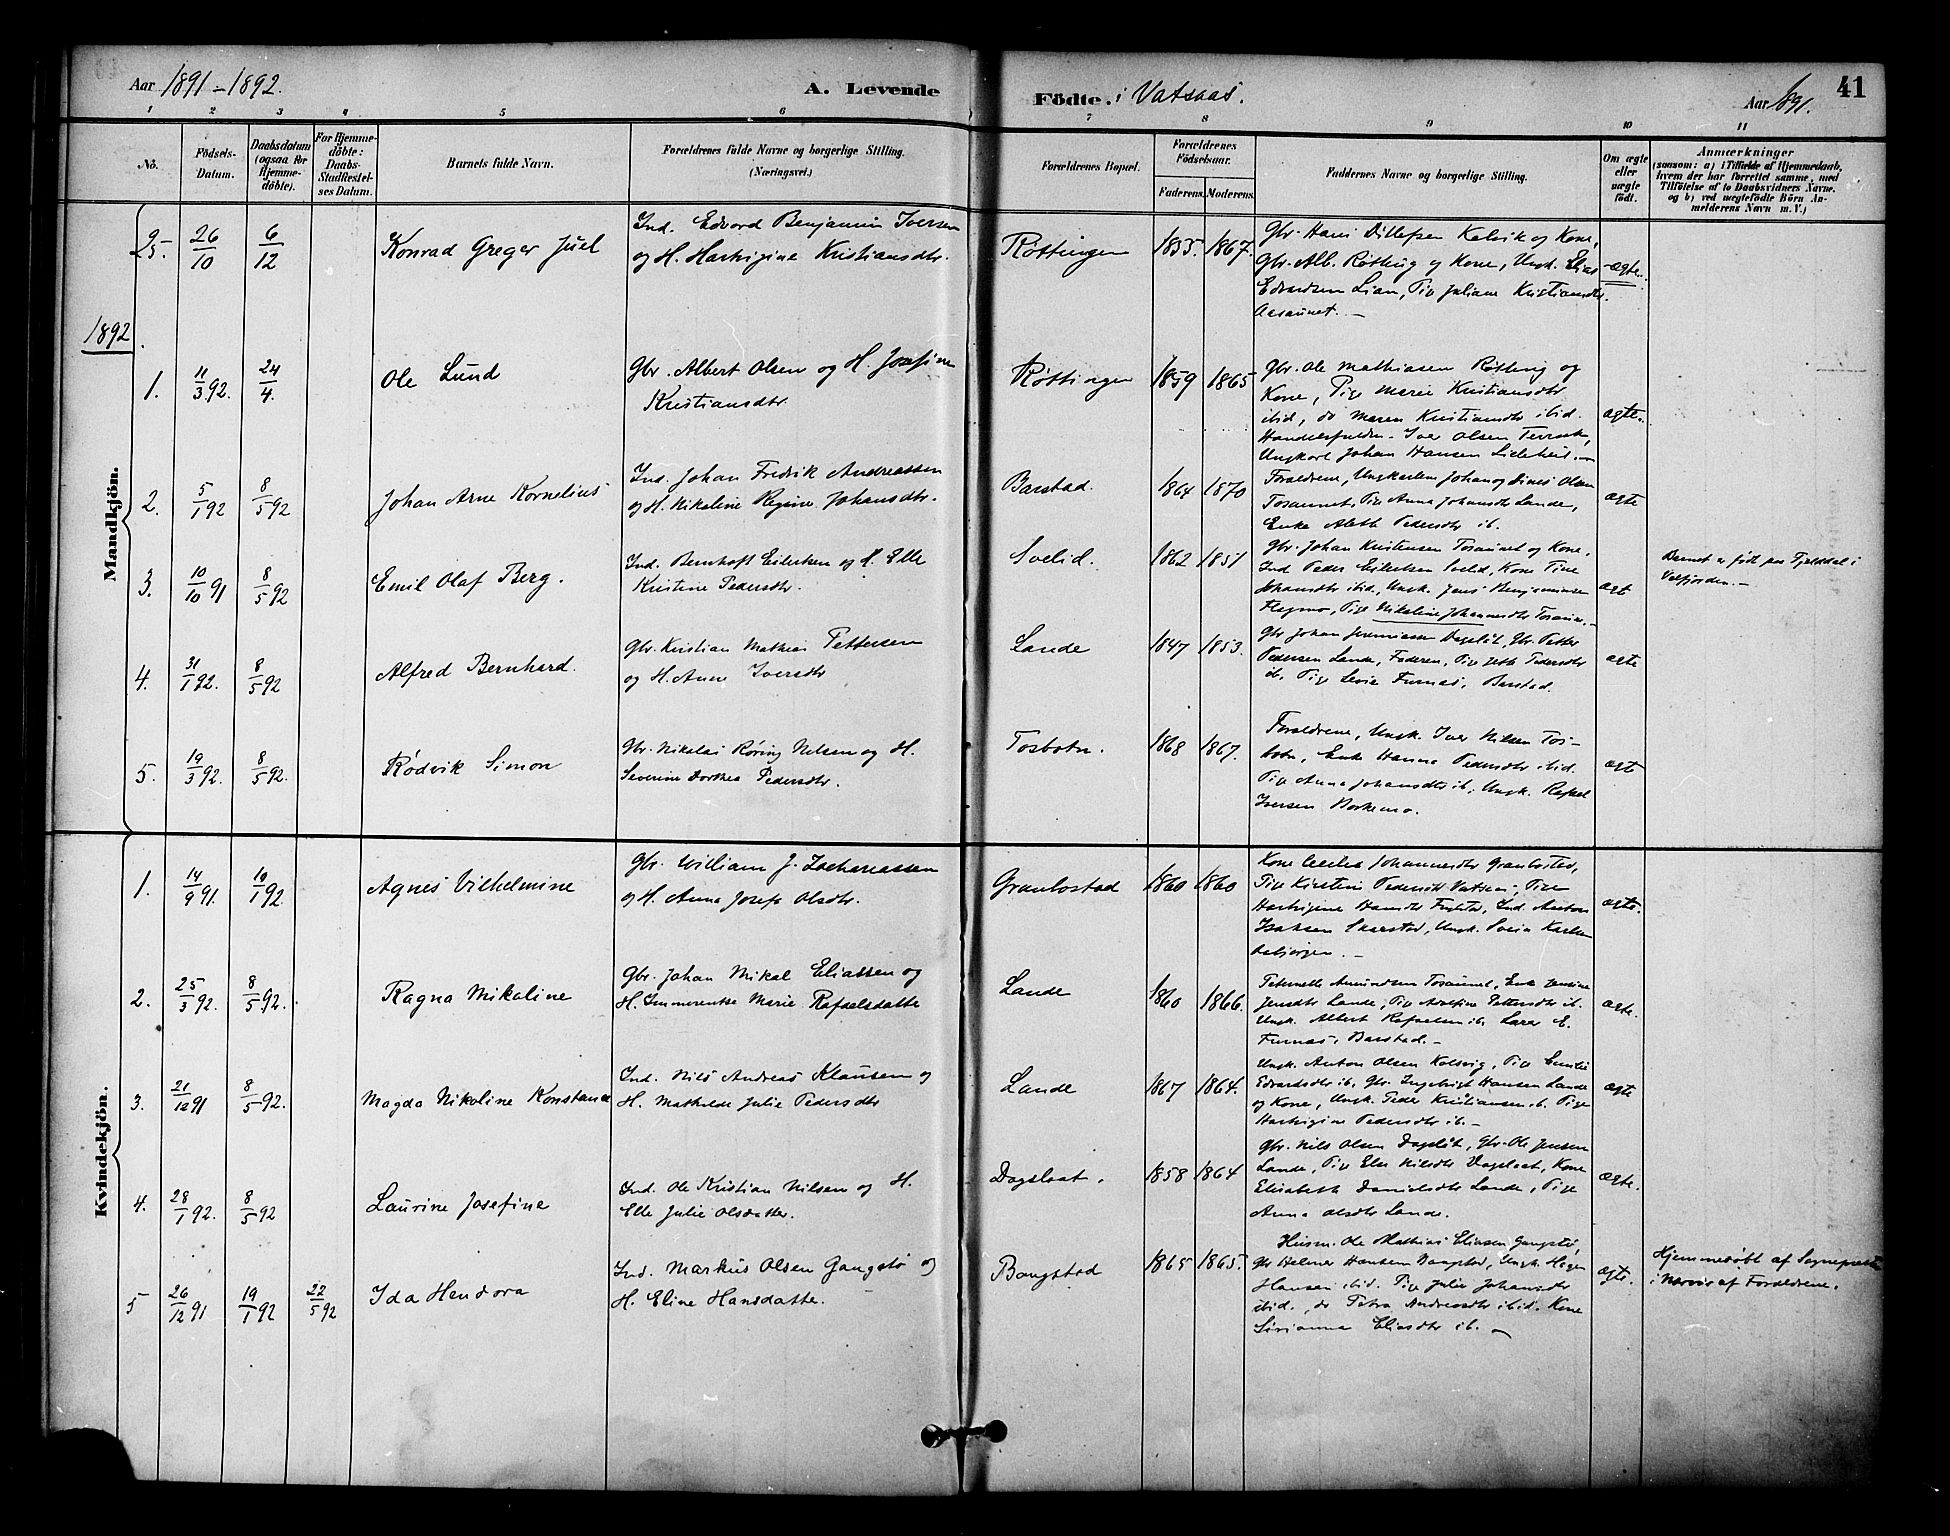 Aar 1891-1892.
A. Levende
Födte. i Vatsaas.
Aar 1891.
41
1 2 3 4 5 6 7 8 9 10 11
No.
Födsels-Datum.
Daabsdatum (ogsaa for Hjemme-döbte).
For Hjemme-döbte: Daabs-Stadfestel-ses Datum.
Barnets fulde Navn.
Forældrenes fulde Navne og borgerlige Stilling.
(Næringsvei.)
Forældrenes Bopæl.
Forældrenes Födselsaar.
Faderens. Moderens.
Faddernes Navne og borgerlige Stilling.
Om ægte eller uægte födt.
Anmærkninger
(saasom: a) i Tilfælde af Hjemmedaab,
hvem der har forrettet samme, med
Tilföielse af to Daabsvidners Navne.
og b) ved uægtefödte Börn An-
melderens Navn m. V.)
25. 26/10 6/12 Konrad Greger Juel
Ind. Edvard Benjamin Iversen
og H. Hartvigine Kristiansdtr.
Røttingen 1855. 1867.
Gbr. Hans Ditlefsen Kalvik og Kone,
Gbr. Alb. Røtting og Kone, Ungk. Elias
Edvardsen Lian, Pige Juliane Kristiansdtr
Aasaunet.
ægte.
1892
Mandkjön.
1. 11/3 92. 24/4. Ole Lund
Gbr. Albert Olsen og H. Josefine
Kristiansdtr.
Røttingen 1859 1865
Gbr. Ole Mathiasen Røtting og
Kone, Pige Marie Kristiansdtr
ibid, do Maren Kristiansdtr ibid.
Iver Olsen Terraak,
Ungkarl Johan Hansen Lilleheil.
ægte.
2. 5/1 92 8/5 92 Johan Arne Kornelius
Ind. Johan Fredrik Andreassen
og H. Nikoline Regine Johansdtr.
Barstad. 1864 1870
Forældrene, Ungkarlen Johan og Dines Olsen
Tosaunet, Pige Anna Johansdtr Lande,
Enke Aleth Pedersdtr ib.
ægte
3. 10/10 91 8/5 92 Emil Olaf Berg.
Ind. Bernhoft Eilertsen og H. Elle
Kristine Pedersdtr.
Svelid. 1862 1851
Gbr. Johan Kristensen Tosaunet og Kone,
Ind Peder Eilertsen Svelid, Kone Tine
Johansdtr ibid, Ungk. Jens Benjaminsen
Flegmo, Pige Nikoline Johannesdtr
ægt
Barnet er født paa Fjelddal i
Velfjorden.
4. 31/1 92. 8/5 92 Alfred Bernhard.
Gbr. Kristian Mathias Pettersen
og H. Anne Iversdtr
Lande 1847 1853.
Gbr Johan Jeremiasen Dagslåt, Gbr. Petter
Pedersen Lande, Faderen, Pige Pedersdtr
ib, Pige Furnæs, Barstad.
ægte
5. 19/3 92. 8/5 92. Rødvik Simon
Gbr. Nikolai Røring Nilsen og H.
Severine Dorthea Pedersdtr.
Tosbotn. 1868 1867.
Forældrene, Ungk. Iver Nilsen Tos-
botn, Enke Hanna Pedersdtr ibid.
Pige Anna Johansdtr ib., Ungk. Rafael
Iversen Borkemo.
ægte
Kvindekjön.
1. 14/9 91. 10/1 92. Agnes Vilhelmine
Gbr. William J. Zachariassen
og H. Anna Josefa Olsdtr.
Granbostad 1860 1860
Kone Cecilia Johannesdtr Granbostad,
Pige Kirstine Pedersdtr Vatsaas, Pige
Hartvigine Hansdtr Ind. Anton
Isaksen Skarstad, Ungk. Svein Karlsen
ægte.
2. 25/3 92. 8/5 92. Ragna Mikaline
Gbr. Johan Mikal Eliassen og
H. Immerentse Marie Rafaelsdatter
Lande 1860 1866.
Peternelle Amundsen Tosaunet, Enke
Jensdtr Lande, Pige Adolfine Pettersdtr ib.
Ungk. Albert Rafaelsen ib, Lars E.
Furnæs, Barstad.
ægte.
3. 21/12 91 8/5 92. Magda Nikoline Konstance
Ind. Nils Andreas Klausen og
H. Mathilde Julie Pedersdtr
Lande 1867 1864.
Ungk. Anton Olsen Kolsvig, Pige Emilie
Edvardsdtr ib, Gbr. Ingebrigt Hansen Lande
og Kone, Ungk. Peder Kristiansen ib. Pige
Hartvigine Pedersdtr ib.
ægte
4. 28/1 92. 8/5 92 Laurine Josefine
Ind. Ole Kristian Nilsen og H.
Elle Julie Olsdatter.
Dagslaat. 1858 1864
Gbr. Nils Olsen Dagslåt, Gbr. Ole Jensen
Lande, Pige Else Nilsdtr Dagslaat, Kone
Elisabeth Danielsdtr Lande, Pige
Anna Olsdtr Lande.
ægte.
5 26/12 91 19/1 92 22/5 92 Ida Hendora
Ind. Markus Olsen Gangstø og
H. Eline Hansdatter.
Bangstad 1865 1865.
Husm. Ole Mathias Eliasen Gangstø,
Gbr Helmer Hansen Bangstad, Ungk. Hagen
Hansen ibid. Pige Julie Johansdtr
ibid., do Petra Andreasdtr ibid. Kone
Sørianna Eliasdtr ib.
ægte.
Hjemmedøbt af Sognepræsten
i Nærvær af Forældrene.